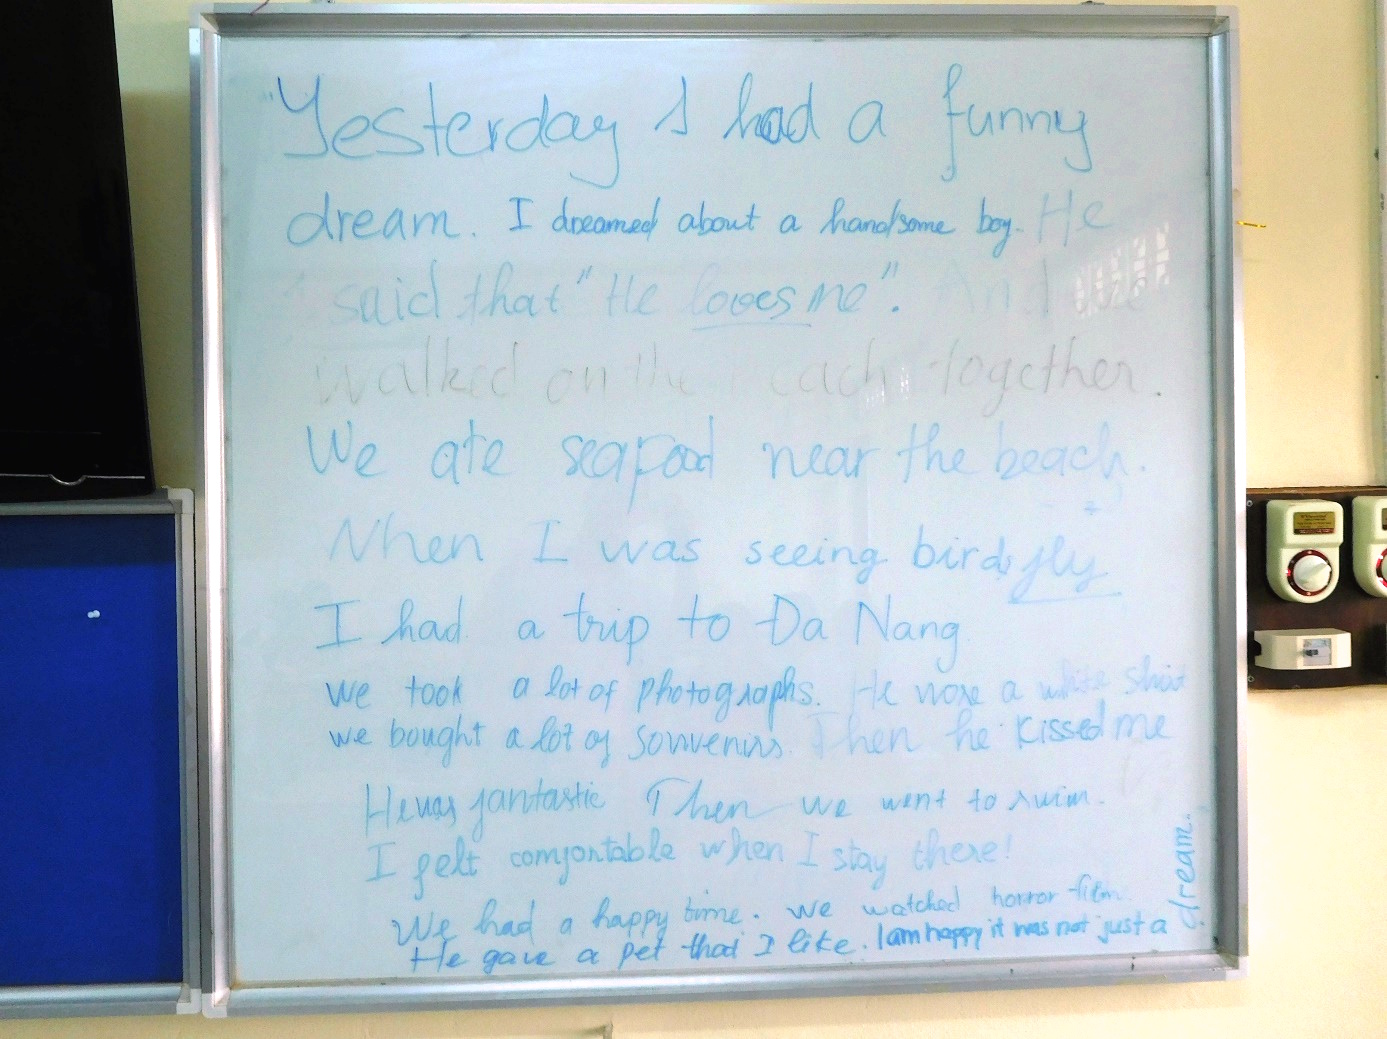 "Yesterday I had a funny
dream. I dreamed about a handsome boy. He
said that "He loves me". And we
walked on the beach together.
We ate seafood near the beach.
When I was seeing birds fly
I had a trip to Da Nang
we took a lot of photographs. He wore a white shirt
we bought a lot of souvenirs. Then he kissed me
He was fantastic Then we went to swim.
I felt comfortable when I stay there!
We had a happy time. We watched horror film.
He gave a pet that I like. I am happy it was not just a
dream.